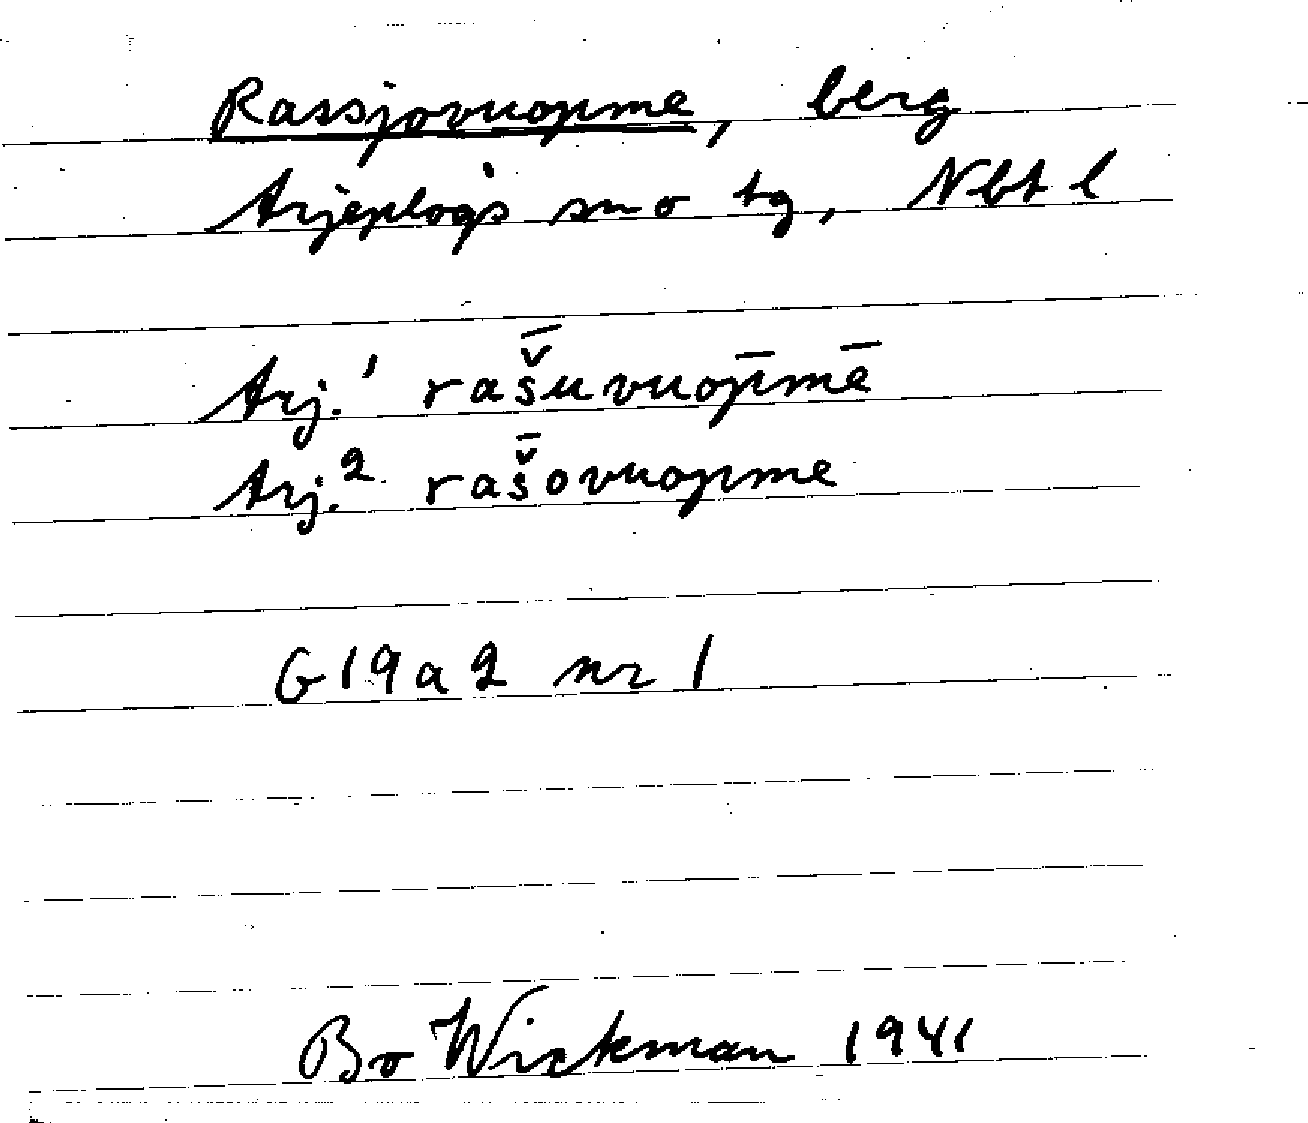 Rassjovuopme, berg
Arjeplogs sn o tg, Nbt l
Arj.¹ raš̄uvuop̄mē
Arj.² raš̄ovuopme
G19a2 nr 1
Bo Wickman 1941